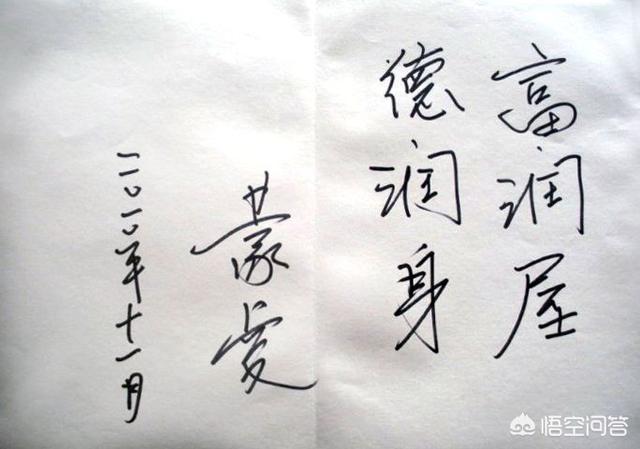 富润屋
德润身
蒙
二〇一〇年十一月
悟空问答